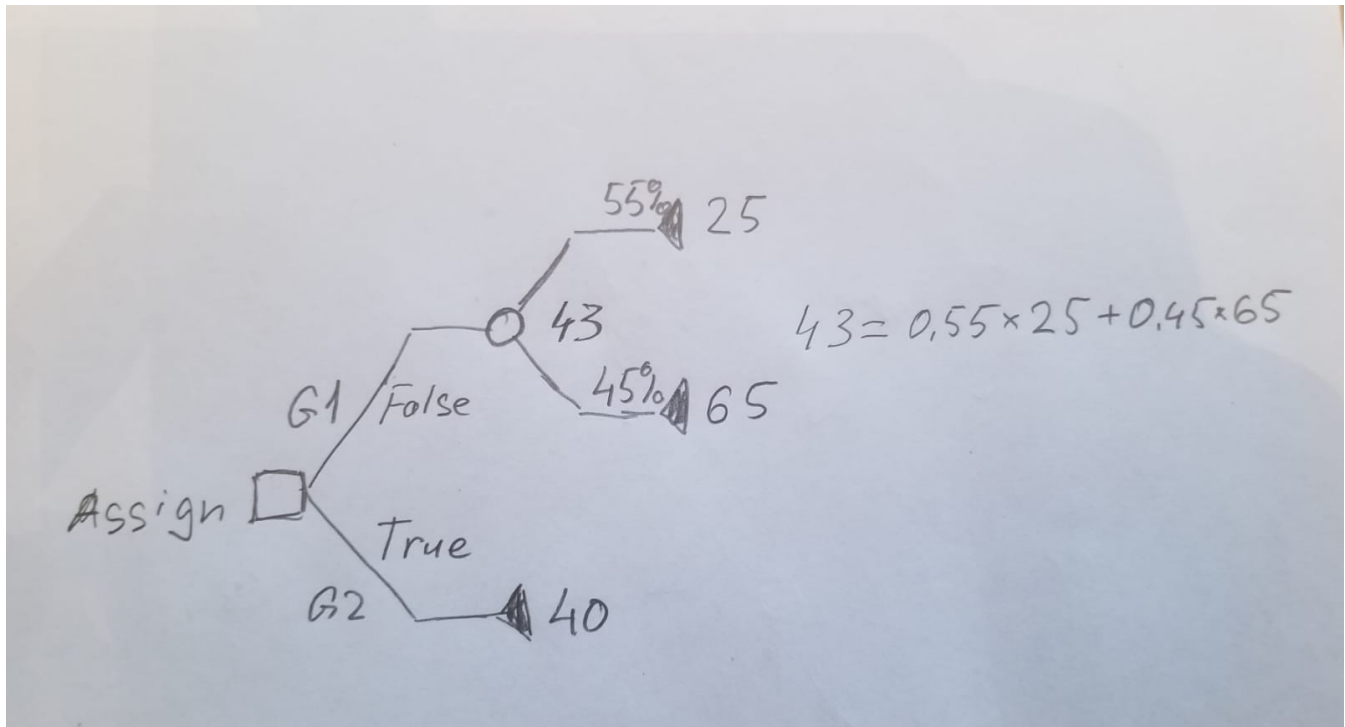 55% 25
43
43 = 0,55×25+0,45×65
45% 65
G1 False
Assign
True
G2 40